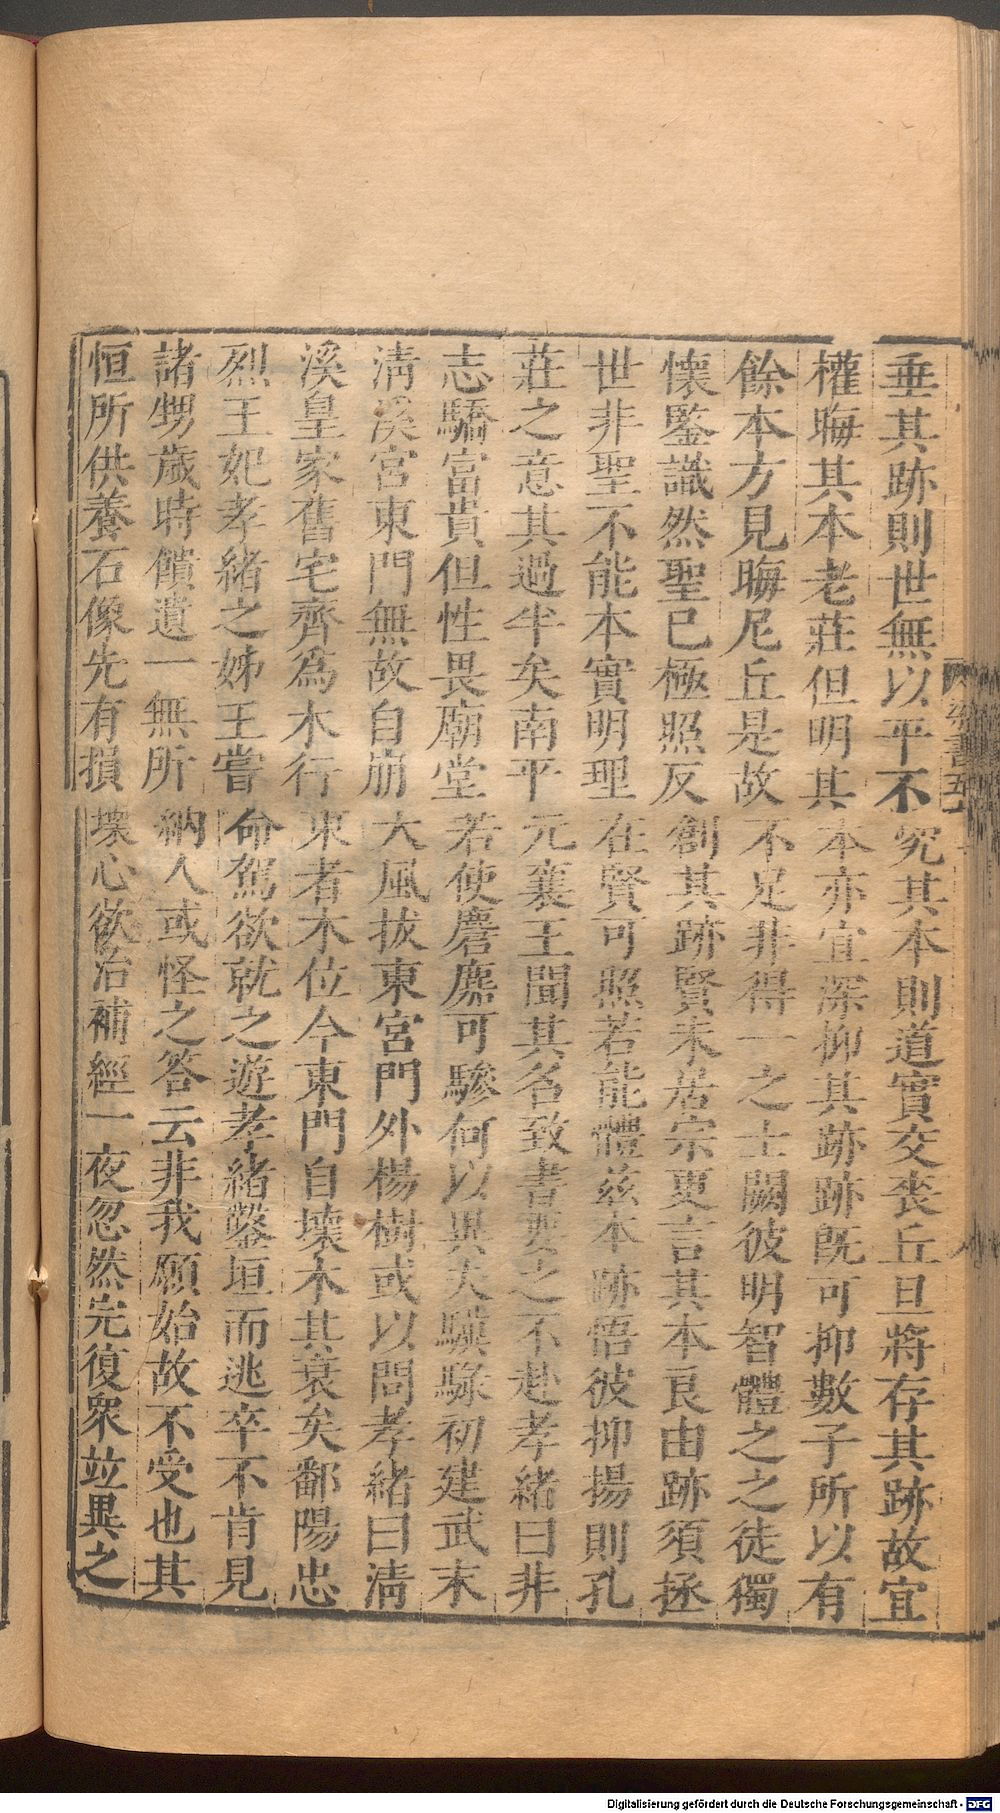 垂其跡則世無以平不究其本則道實交喪丘旦將存其跡故宜
權晦其本老莊但明其本亦宜深抑其跡跡旣可抑數子所以有
餘本方見晦尼丘是故不足非得一之士闕彼明智體之之徒獨
懷鑒識然聖已極照反創其跡賢未居宗更言其本良由跡須拯
世非聖不能本實明理在賢可照若能體茲本跡悟彼抑揚則孔
莊之意其過半矣南平元襄王聞其名致書要之不赴孝緒曰非
志驕富貴但性畏廟堂若使麏麚可驂何以異夫驥騄初建武末
淸溪宮東門無故自崩大風拔東宮門外楊樹或以問孝緒曰淸
溪皇家舊宅齊爲木行東者木位今東門自壞木其衰矣鄱陽忠
烈王妃孝緒之姊王嘗命駕欲就之遊孝緒鑿垣而逃卒不肯見
諸甥歲時饋遺一無所納人或怪之答云非我願始故不受也其
恒所供養石像先有損壞心欲治補經一夜忽然完復眾竝異之
Digitalisierung gefördert durch die Deutsche Forschungsgemeinschaft - DFG